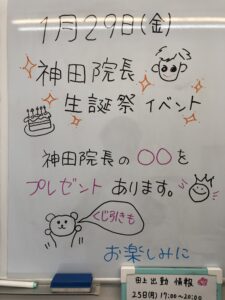 1月29日(金)
神田院長
生誕祭イベント
神田院長の〇〇を
プレゼントあります。
くじ引きも
お楽しみに
田上出勤情報
25日(月)17:00〜20:00